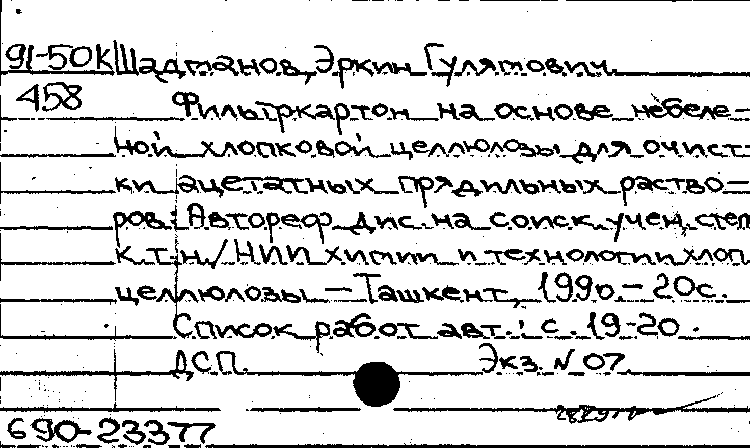 91-50К Шадманов, Эркин Гулямович.
458 Фильтркартон на основе небеле-
ной хлопковой целлюлозы для очист-
ки ацетатных прядильных раство-
ров: Автореф. дис. на соиск. учен. степ
к.т.н./НИИ химии и технологии хлоп.
целлюлозы. — Ташкент, 1990. - 20с.
Список работ авт.: с. 19-20.
ДСП. Экз. N 07.
690-23377